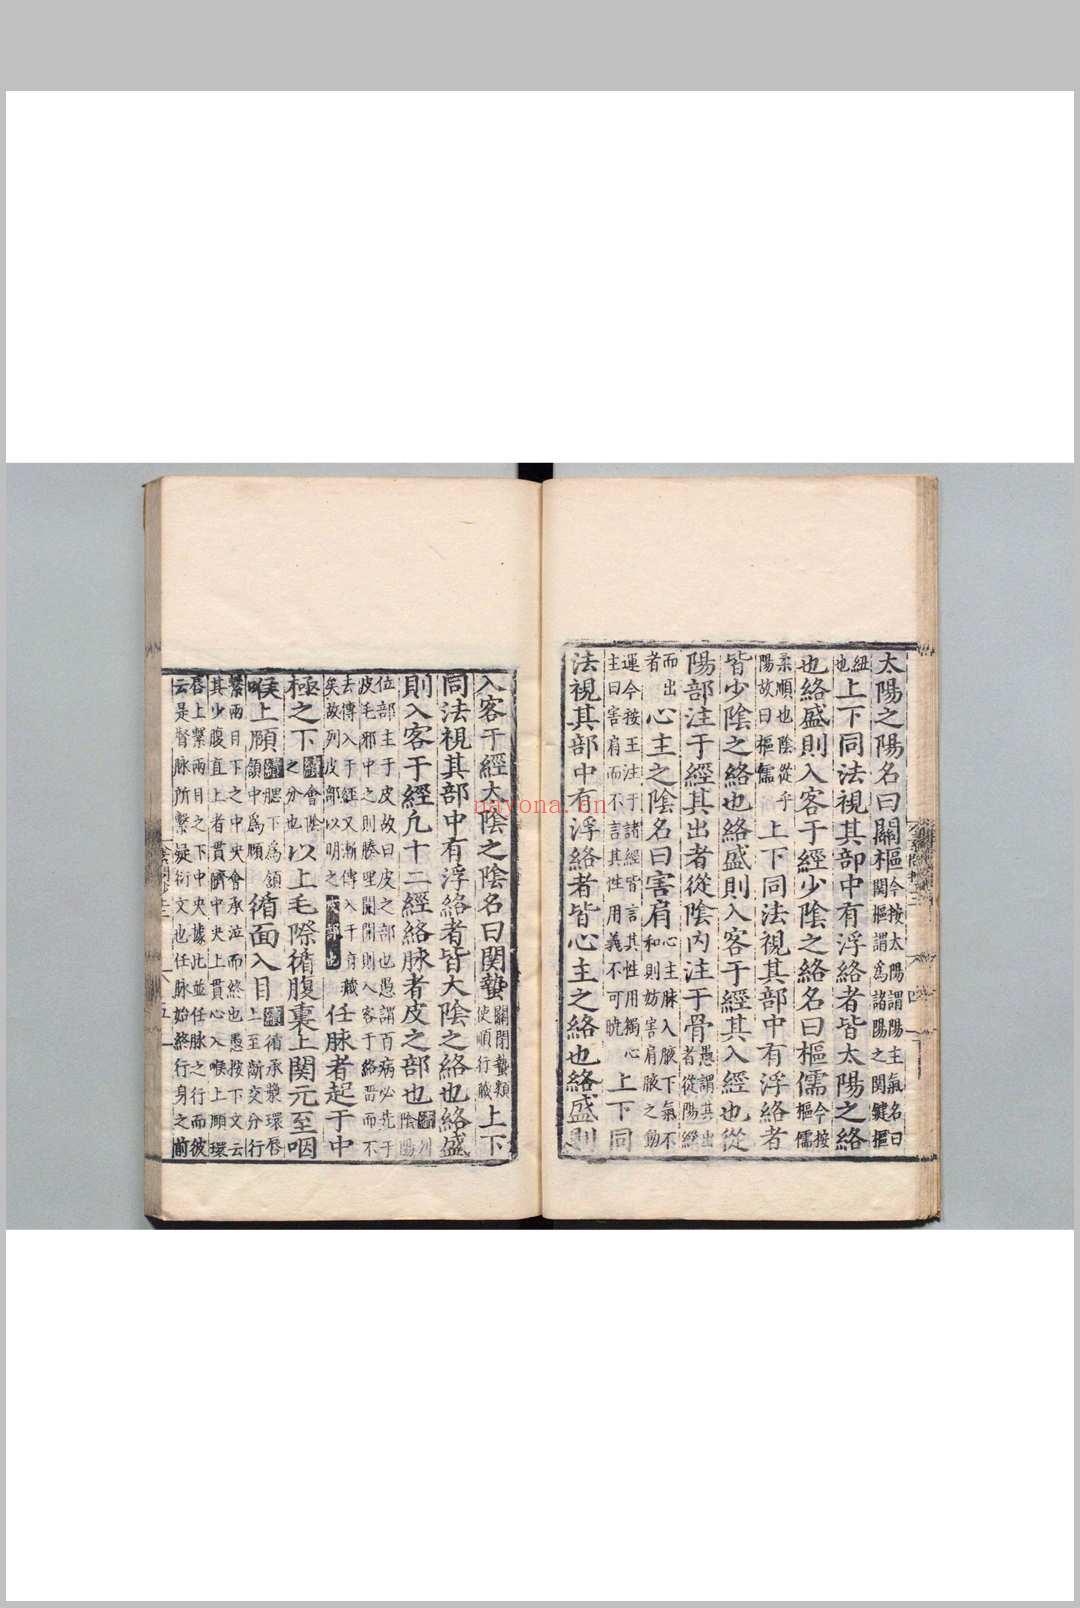 太陽之陽名曰關樞今按太陽謂陽主氣名曰關樞謂爲諸陽之関鍵樞
紐也上下同法視其部中有浮絡者皆太陽之絡
也絡盛則入客于經少陰之絡名曰樞儒今按樞儒
柔順也陰從乎陽故曰樞儒上下同法視其部中有浮絡者
皆少陰之絡也絡盛則入客于經其入經也從
陽部注于經其出者從陰內注于骨愚謂其出者從陽經
而出者心主之陰名曰害肩心主脉入腋下氣不和則妨害肩腋之動
運今按王注于諸經皆言其性用獨心主曰害肩而不言其性用義不可曉上下同
法視其部中有浮絡者皆心主之絡也絡盛則
入客于經太陰之陰名曰関蟄關閉蟄類使順行藏上下
同法視其部中有浮絡者皆太陰之絡也絡盛
則入客于經凡十二經絡脉者皮之部也列陰陽
位部主于皮故曰皮之部也愚謂百病必先于皮毛邪中之則腠理開開則入客于絡畱而不
去傳入于經又漸傳入于府藏矣故列皮部以明之任脉者起于中
極之下會陰之分也以上毛際循腹裏上関元至咽
喉上頤腮下爲頷頷中爲頤循面入目循承漿環唇上至齗交分行
繫兩目下之中央會承泣而終也愚按下文云其少腹直上者貫臍中央上貫心入喉上頤環
唇上繫兩目之下中央據此並任脉之行而彼云是督脉所繫疑衍文也任脉始終行身之前
nayona.cn